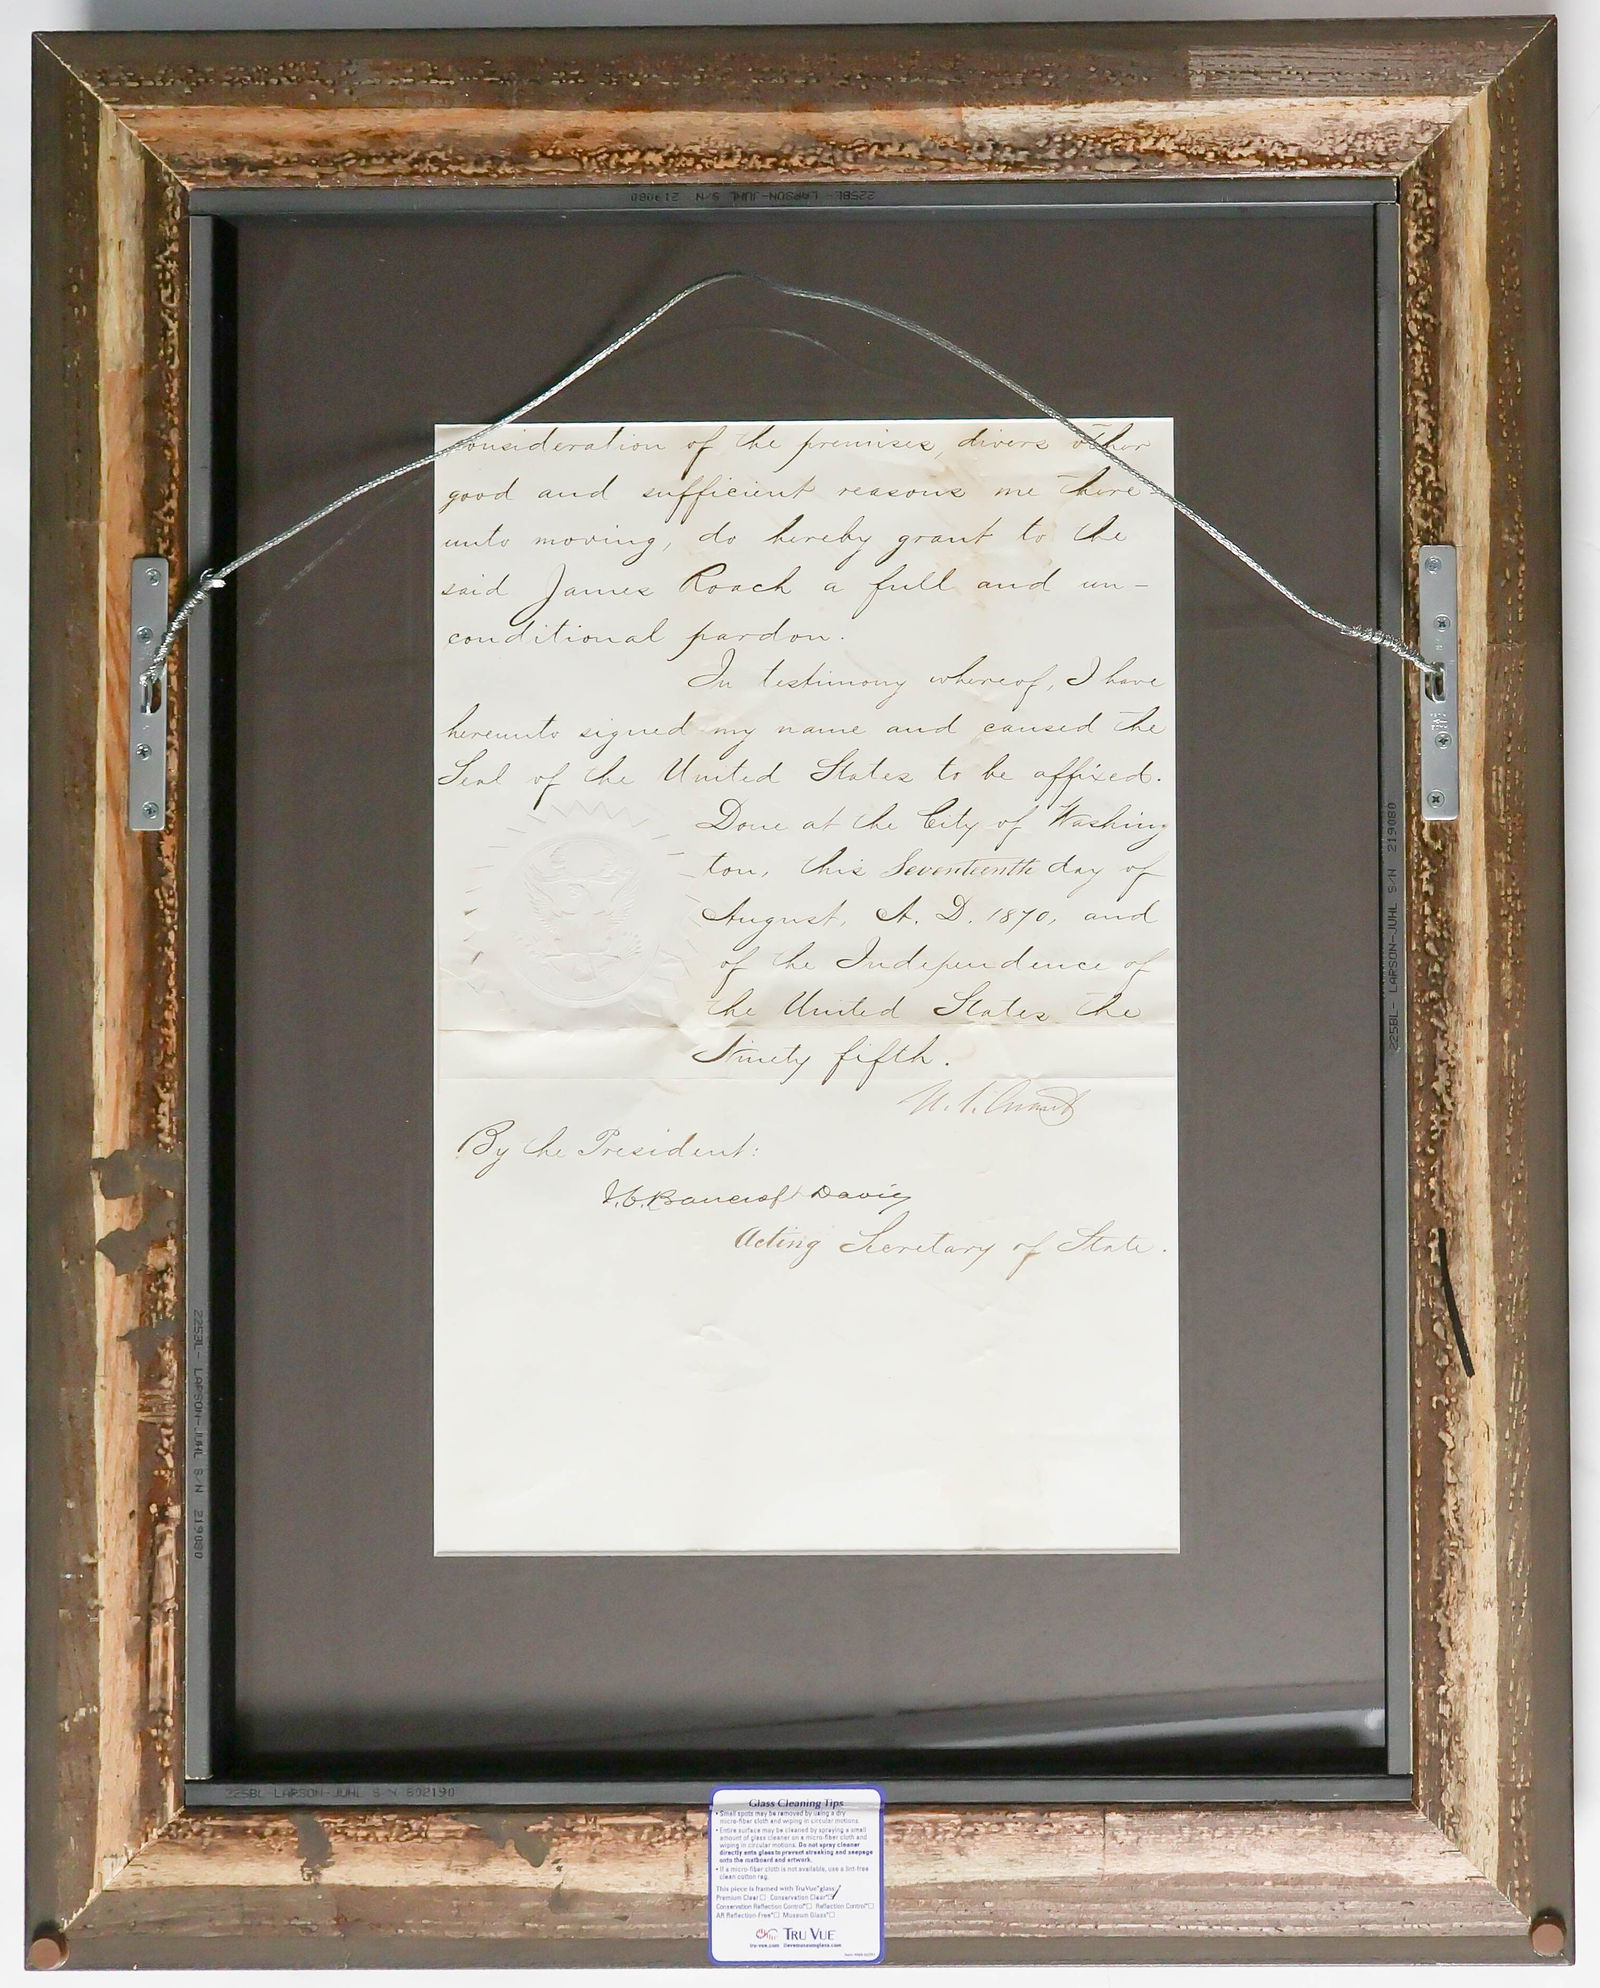 225BL- LARSON-JUHL S/N 219080
consideration of the premises, divers other
good and sufficient reasons me there-
unto moving, do hereby grant to the
said James Roach a full and un-
conditional pardon.
In testimony whereof, I have
hereunto signed my name and caused the
Seal of the United States to be affixed.
Done at the City of Washing
ton, this Seventeenth day of
August, A. D. 1870, and
of the Independence of
the United States the
Ninety fifth.
U. S. Grant
By the President:
J. C. Bancroft Davis
Acting Secretary of State.
225BL- LARSON-JUHL S/N 219080
225BL- LARSON-JUHL S/N 219080
225BL LARSON-JUHL S/N 802190
Glass Cleaning Tips
• Small spots may be removed by using a dry
micro-fiber cloth and wiping in circular motions.
• Entire surface may be cleaned by spraying a small
amount of glass cleaner on a micro-fiber cloth and
wiping in circular motions. Do not spray cleaner
directly onto glass to prevent streaking and seepage
onto the matboard and artwork.
• If a micro-fiber cloth is not available, use a lint-free
clean cotton rag.
This piece is framed with Tru Vue® glass
Premium Clear □ Conservation Clear® □
Conservation Reflection Control® □ Reflection Control® □
AR Reflection-Free® □ Museum Glass® □
TRU VUE
tru-vue.com